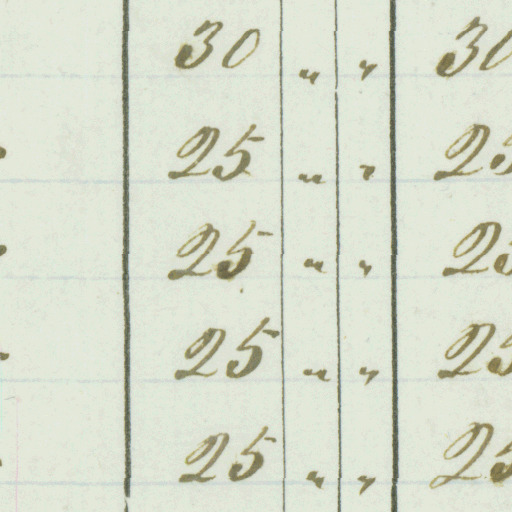 30 " " 30
25 " " 25
25 " " 25
25 " " 25
25 " " 25